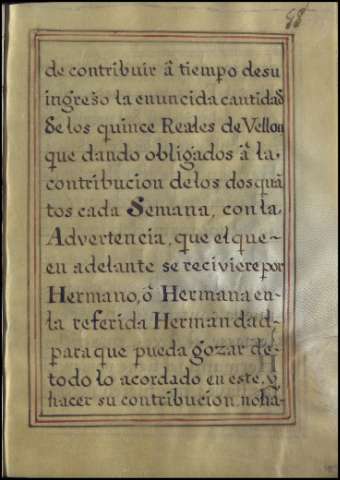 98
de contribuir â tiempo desu
ingreso la enuncida cantidad
de los quince Reales de Vellon
que dando obligados â la
contribucion de los dos quã
tos cada Semana, con la
Advertencia, que el que-
en adelante se reciviere por
Hermano, ô Hermana en-
la referida Hermandad-
para que pueda gozar de-
todo lo acordado en este, y
hacer su contribucion, no hâ-